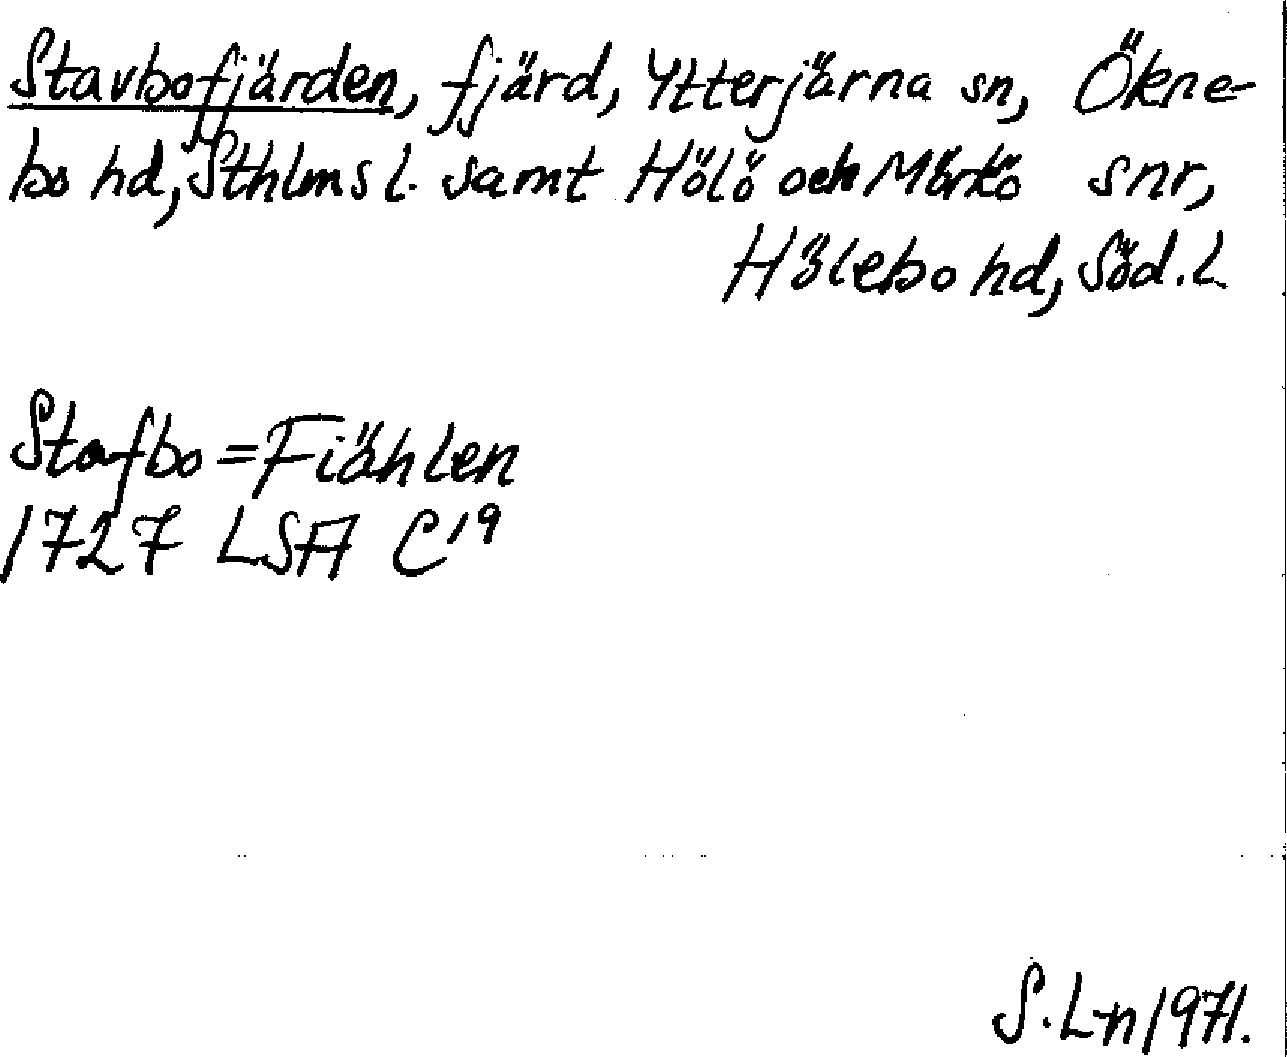 Stavbofjärden, fjärd, Ytterjärna sn, Ökne-
bo hd, Sthlms l. samt Hölö och Mörkö snr,
Hölebo hd, Söd. L
Stafbo=Fiählen
1727 LSA C19
S. L-n 1971.